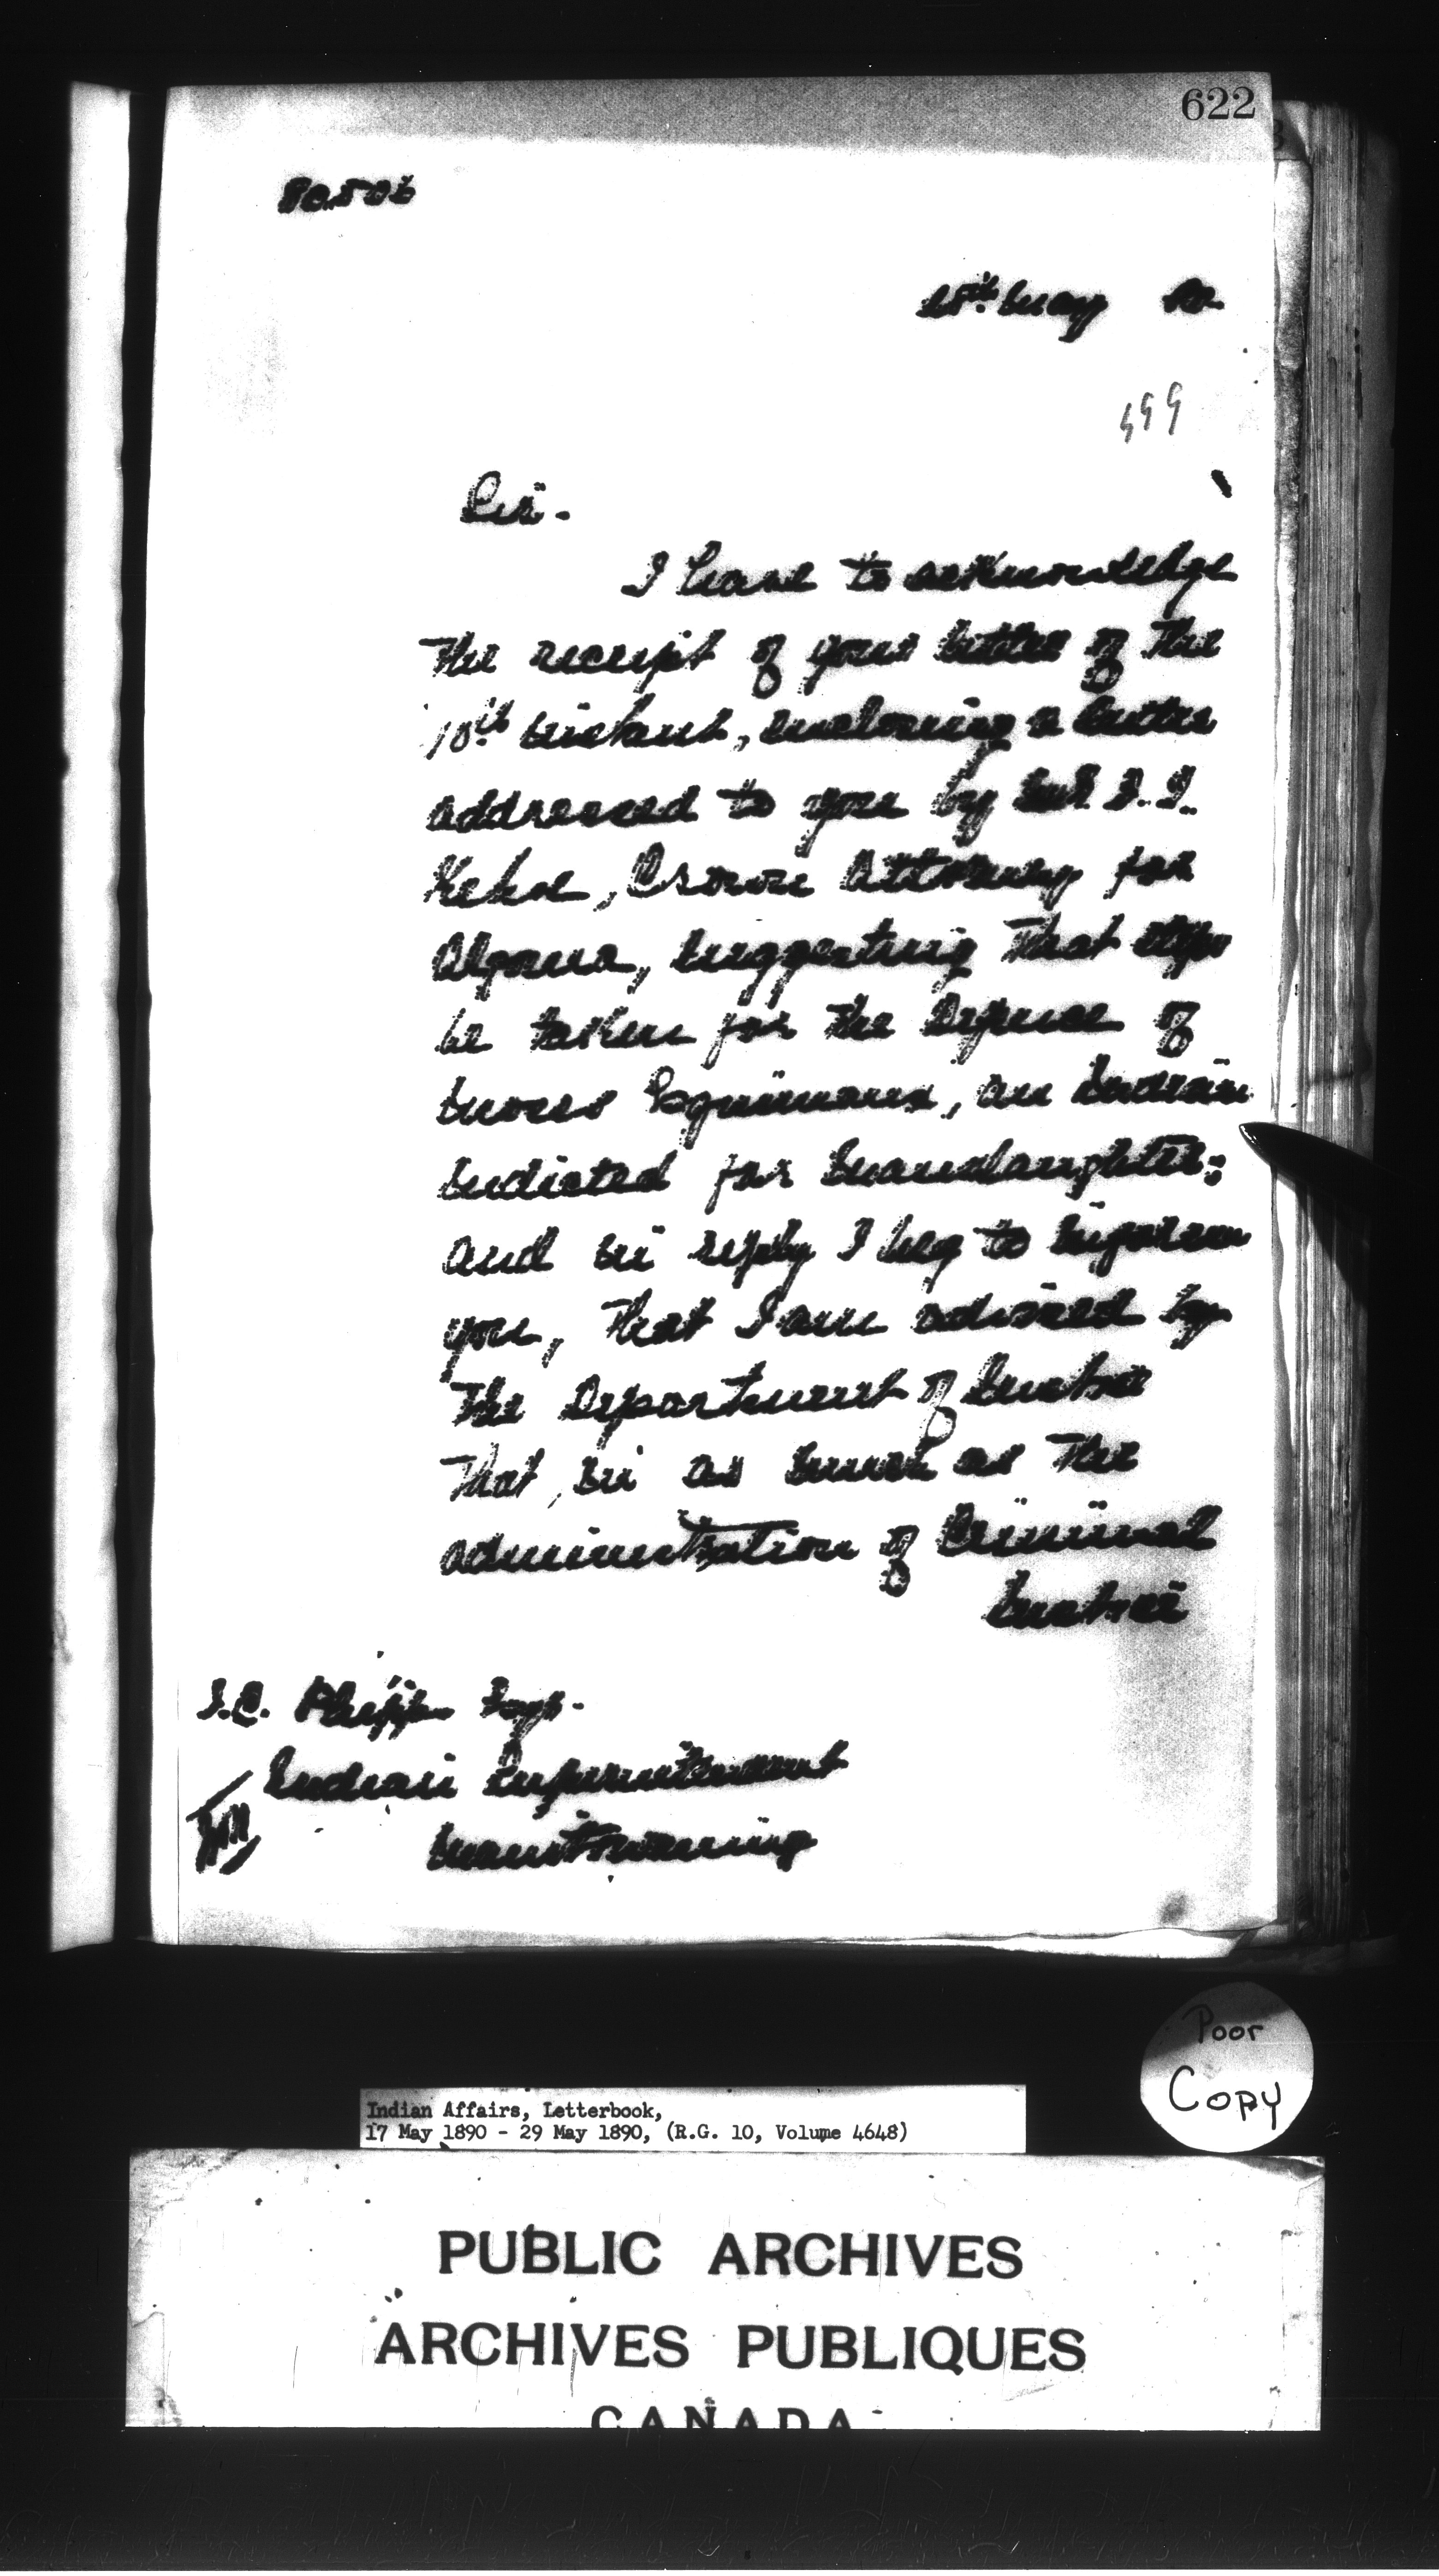 622
80.506
28th May 90
499
Sir.
I have to acknowledge
the receipt of your letter of the
10th instant, enclosing a letter
addressed to you by Mr. J. J.
Kehoe, Crown Attorney for
Algoma, suggesting that steps
be taken for the defence of
Moses Esquimaux, an Indian
indicted for manslaughter;
and in reply I beg to inform
you, that I am advised by
the Department of Justice
that, in as much as the
administration of Criminal
Justice
J.C. Phipps Esqr.
Indian Superintendent
Manitowaning
Poor
Copy
Indian Affairs, Letterbook,
17 May 1890 - 29 May 1890, (R.G. 10, Volume 4648)
PUBLIC ARCHIVES
ARCHIVES PUBLIQUES
CANADA